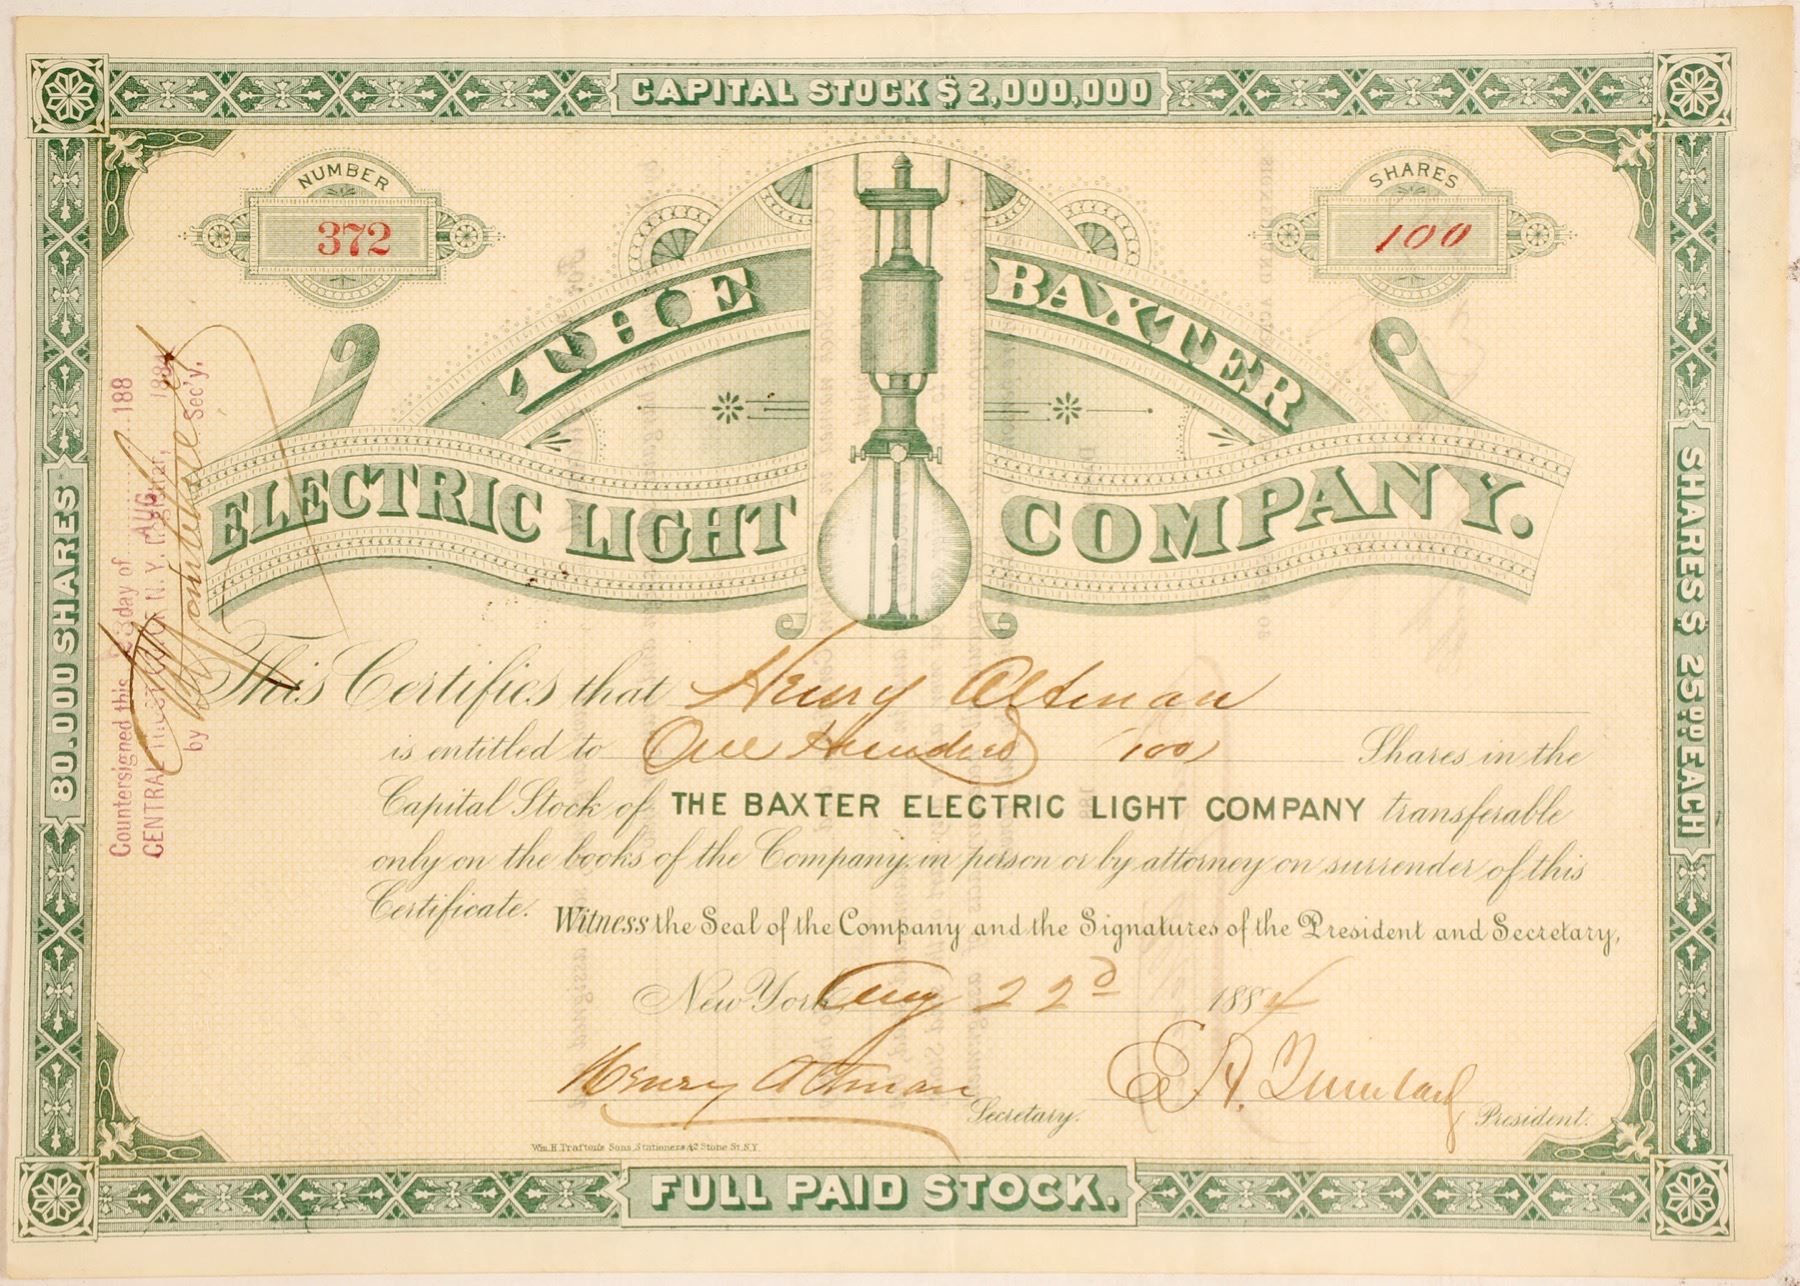 CAPITAL STOCK $2,000,000
NUMBER
372
SHARES
100
THE BAXTER
ELECTRIC LIGHT COMPANY.
80.000 SHARES
SHARES $ 25.00 EACH
Countersigned this 23 day of AUG 188
CENTRAL TRUST CO. OF N. Y. Registrar, 1884
by Sec'y.
This Certifies that Henry Altman
is entitled to One Hundred 100 Shares in the
Capital Stock of THE BAXTER ELECTRIC LIGHT COMPANY transferable
only on the books of the Company, in person or by attorney on surrender of this
Certificate. Witness the Seal of the Company and the Signatures of the President and Secretary,
New York Aug 22d 1884
Henry Altman Secretary.
E. A. President.
Wm. H. Trafton's Sons, Stationers 42 Stone St. N.Y.
FULL PAID STOCK.